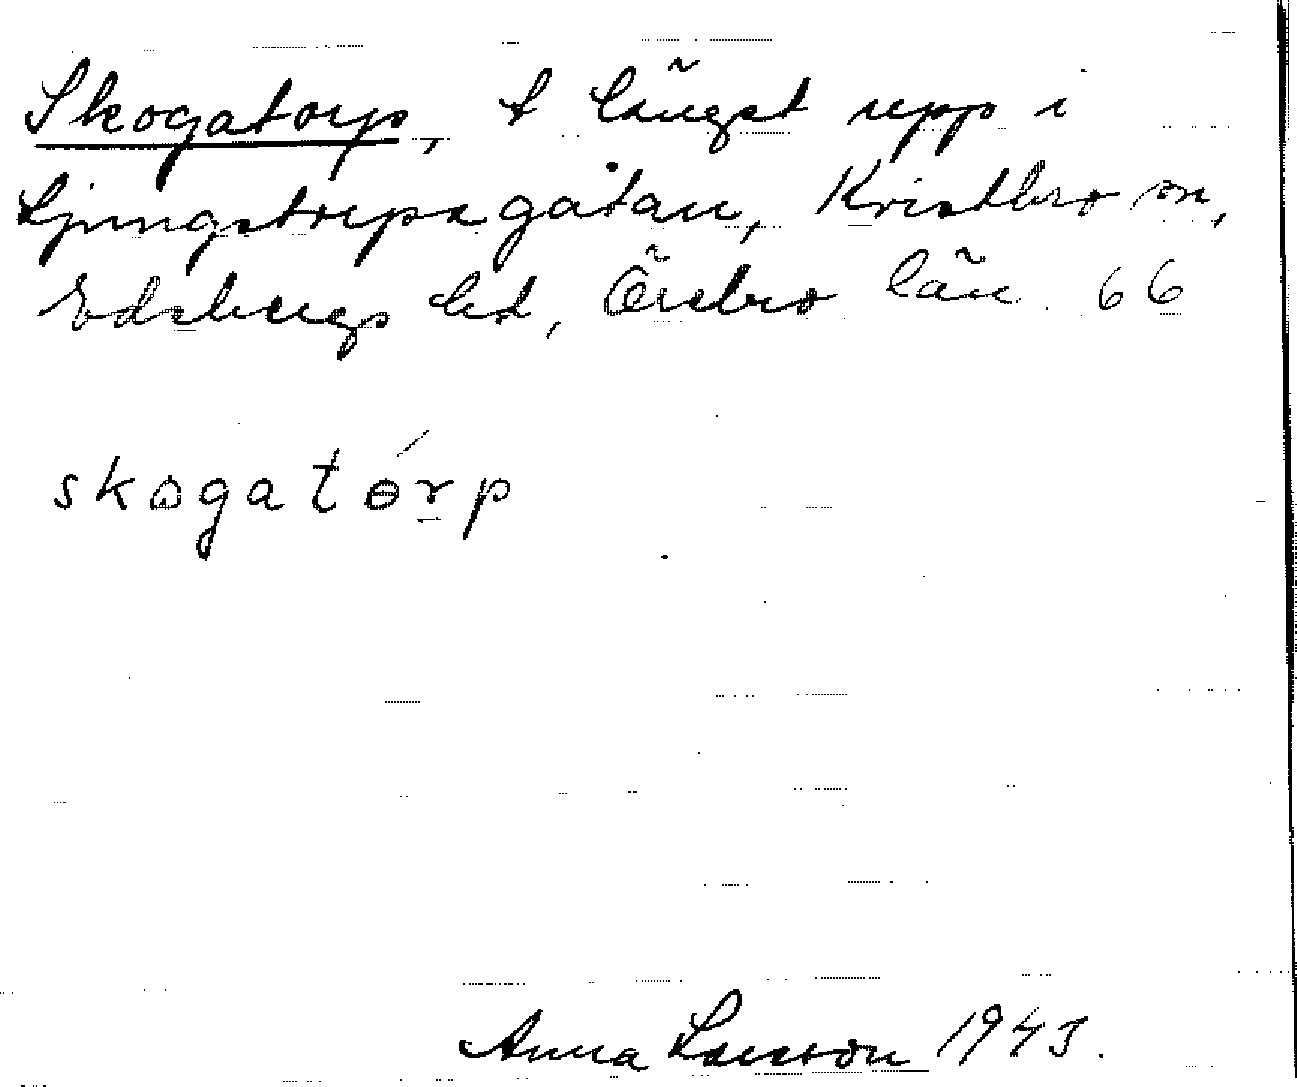 Skogatorp, t längst upp i
Ljungstorpagatan, Kvistbro sn,
Edsbergs hd, Örebro län. 66
skogatɵ́rp
Anna Larsson 1943.